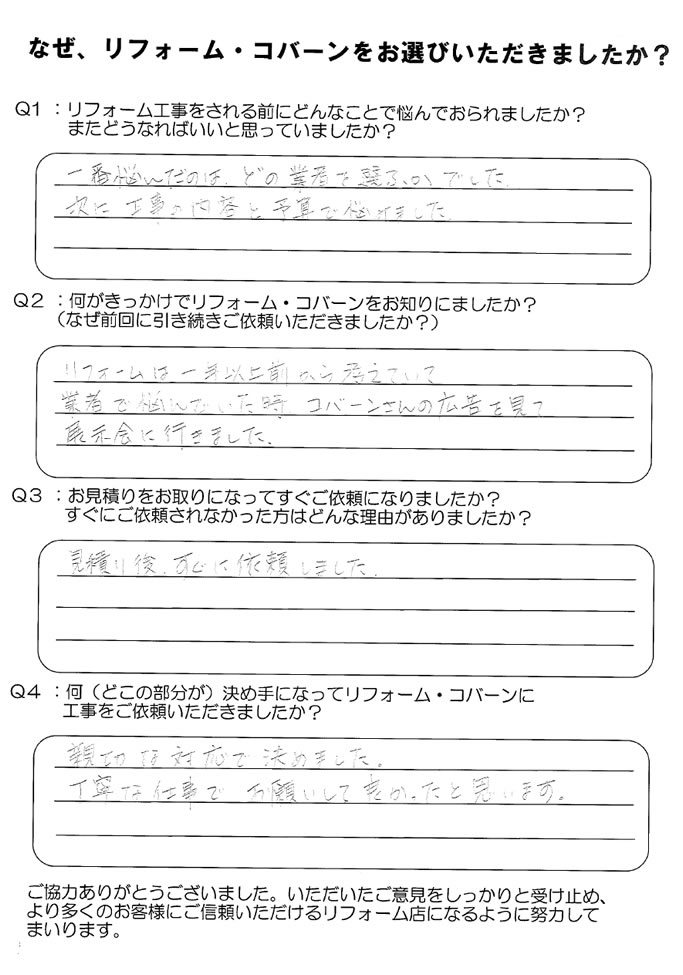 なぜ、リフォーム・コバーンをお選びいただきましたか？
Q1：リフォーム工事をされる前にどんなことで悩んでおられましたか？
またどうなればいいと思っていましたか？
一番悩んだのは、どの業者を選ぶか、でした。
次に工事の内容と予算で悩みました。
Q2：何がきっかけでリフォーム・コバーンをお知りにましたか？
（なぜ前回に引き続きご依頼いただきましたか？）
リフォームは一年以上前から考えていて
業者で悩んでいた時、コバーンさんの広告を見て
展示会に行きました。
Q3：お見積りをお取りになってすぐご依頼になりましたか？
すぐにご依頼されなかった方はどんな理由がありましたか？
見積り後、すぐに依頼しました。
Q4：何（どこの部分が）決め手になってリフォーム・コバーンに
工事をご依頼いただきましたか？
親切な対応で決めました。
丁寧な仕事で お願いして良かったと思います。
ご協力ありがとうございました。いただいたご意見をしっかりと受け止め、
より多くのお客様にご信頼いただけるリフォーム店になるように努力して
まいります。